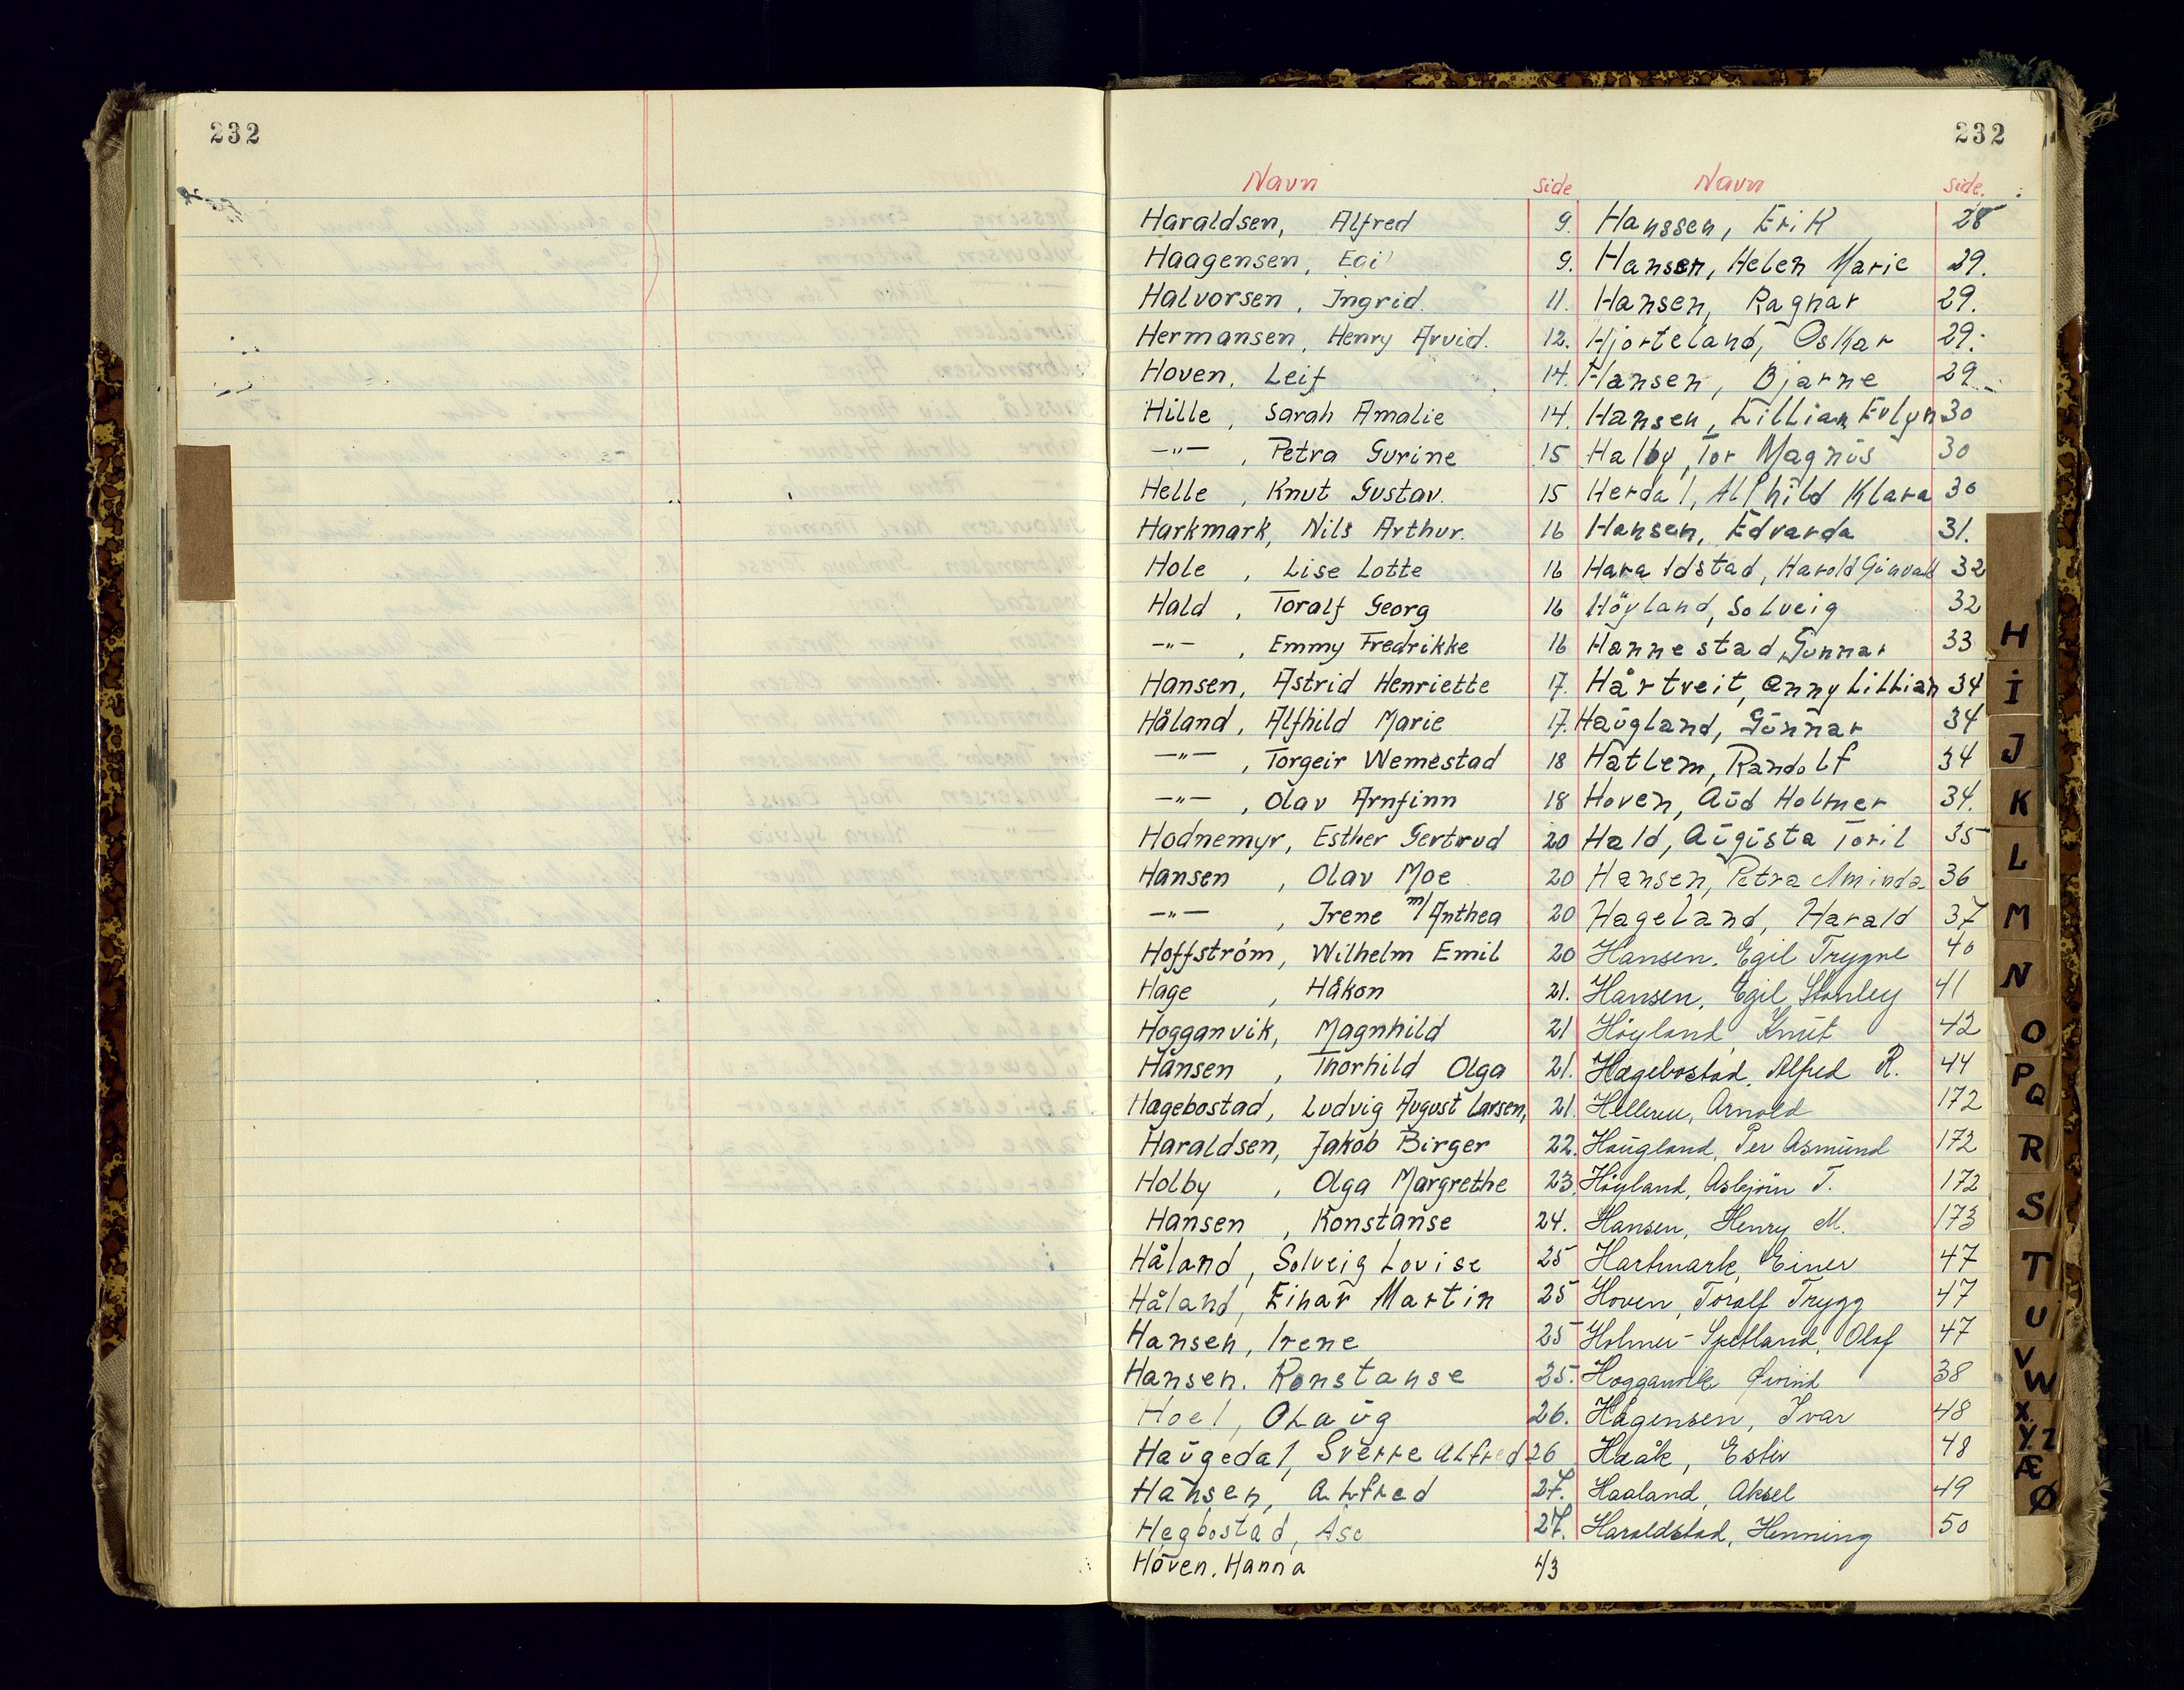 232
232
Navn side Navn side.
Haraldsen, Alfred 9. Hanssen, Erik 28
Haagensen, Egil 9. Hansen, Helen Marie 29.
Halvorsen, Ingrid. 11. Hansen, Ragnar 29.
Hermansen, Henry Arvid. 12. Hjorteland, Oskar 29.
Hoven, Leif 14. Hansen, Bjarne 29.
Hille, Sarah Amalie 14. Hansen, Lillian Evlyn 30
—"— , Petra Gurine 15 Halby, Tor Magnus 30
Helle, Knut Gustav. 15 Herdal, Alfhild Klara 30
Harkmark, Nils Arthur. 16 Hansen, Edvarda 31.
Hole, Lise Lotte 16 Haraldstad, Harold 32
Hald, Toralf Georg 16 Höyland, Solveig 32
—"— , Emmy Fredrikke 16 Hannestad, Gunnar 33
Hansen, Astrid Henriette 17. Hårtveit, Anny Lillian 34
Håland, Alfhild Marie 17. Haugland, Gunnar 34
—"— , Torgeir Wemestad 18 Hatlem, Randolf 34
—"— , Olav Arnfinn 18 Hoven, Aud Holmer 34.
Hodnemyr, Esther Gertrud 20 Hald, Augusta Toril 35
Hansen, Olav Moe 20 Hansen, Petra Aminda 36
—"— , Irene m/Anthea 20 Hageland, Harald 37
Hoffström, Wilhelm Emil 20 Hansen, Egil Trygve 40
Hage, Håkon 21. Hansen, Egil Stanley 41
Hogganvik, Magnhild 21 Höyland, Knut 42
Hansen, Thorhild Olga 21. Hægebostad, Alfred R. 44
Hagebostad, Ludvig August Larsen, 21. Helleren, Arnold 172
Haraldsen, Jakob Birger 22. Haugland, Per Asmund 172
Holby, Olga Margrethe 23. Höyland, Asbjörn T. 172
Hansen, Konstanse 24. Hansen, Henry M. 173
Håland, Solveig Lovise 25 Hartmark, Einer 47
Håland, Einar Martin 25 Hoven, Toralf Trygg 47
Hansen, Irene 25 Holmer-Spetland, Olaf 47
Hansen. Konstanse 25. Hogganvik Øivind 38
Hoel, Olaug 26. Hågensen, Ivar 48
Haugedal, Sverre Alfred 26 Haåk, Ester 48
Hansen, Alfred 27. Haaland, Aksel 49
Hegbostad, Ase 27. Haraldstad, Henning 50
Hoven. Hanna 43
H
I
J
K
L
M
N
O
P
Q
R
S
T
U
V
W
X
Y Z
Æ
Ø